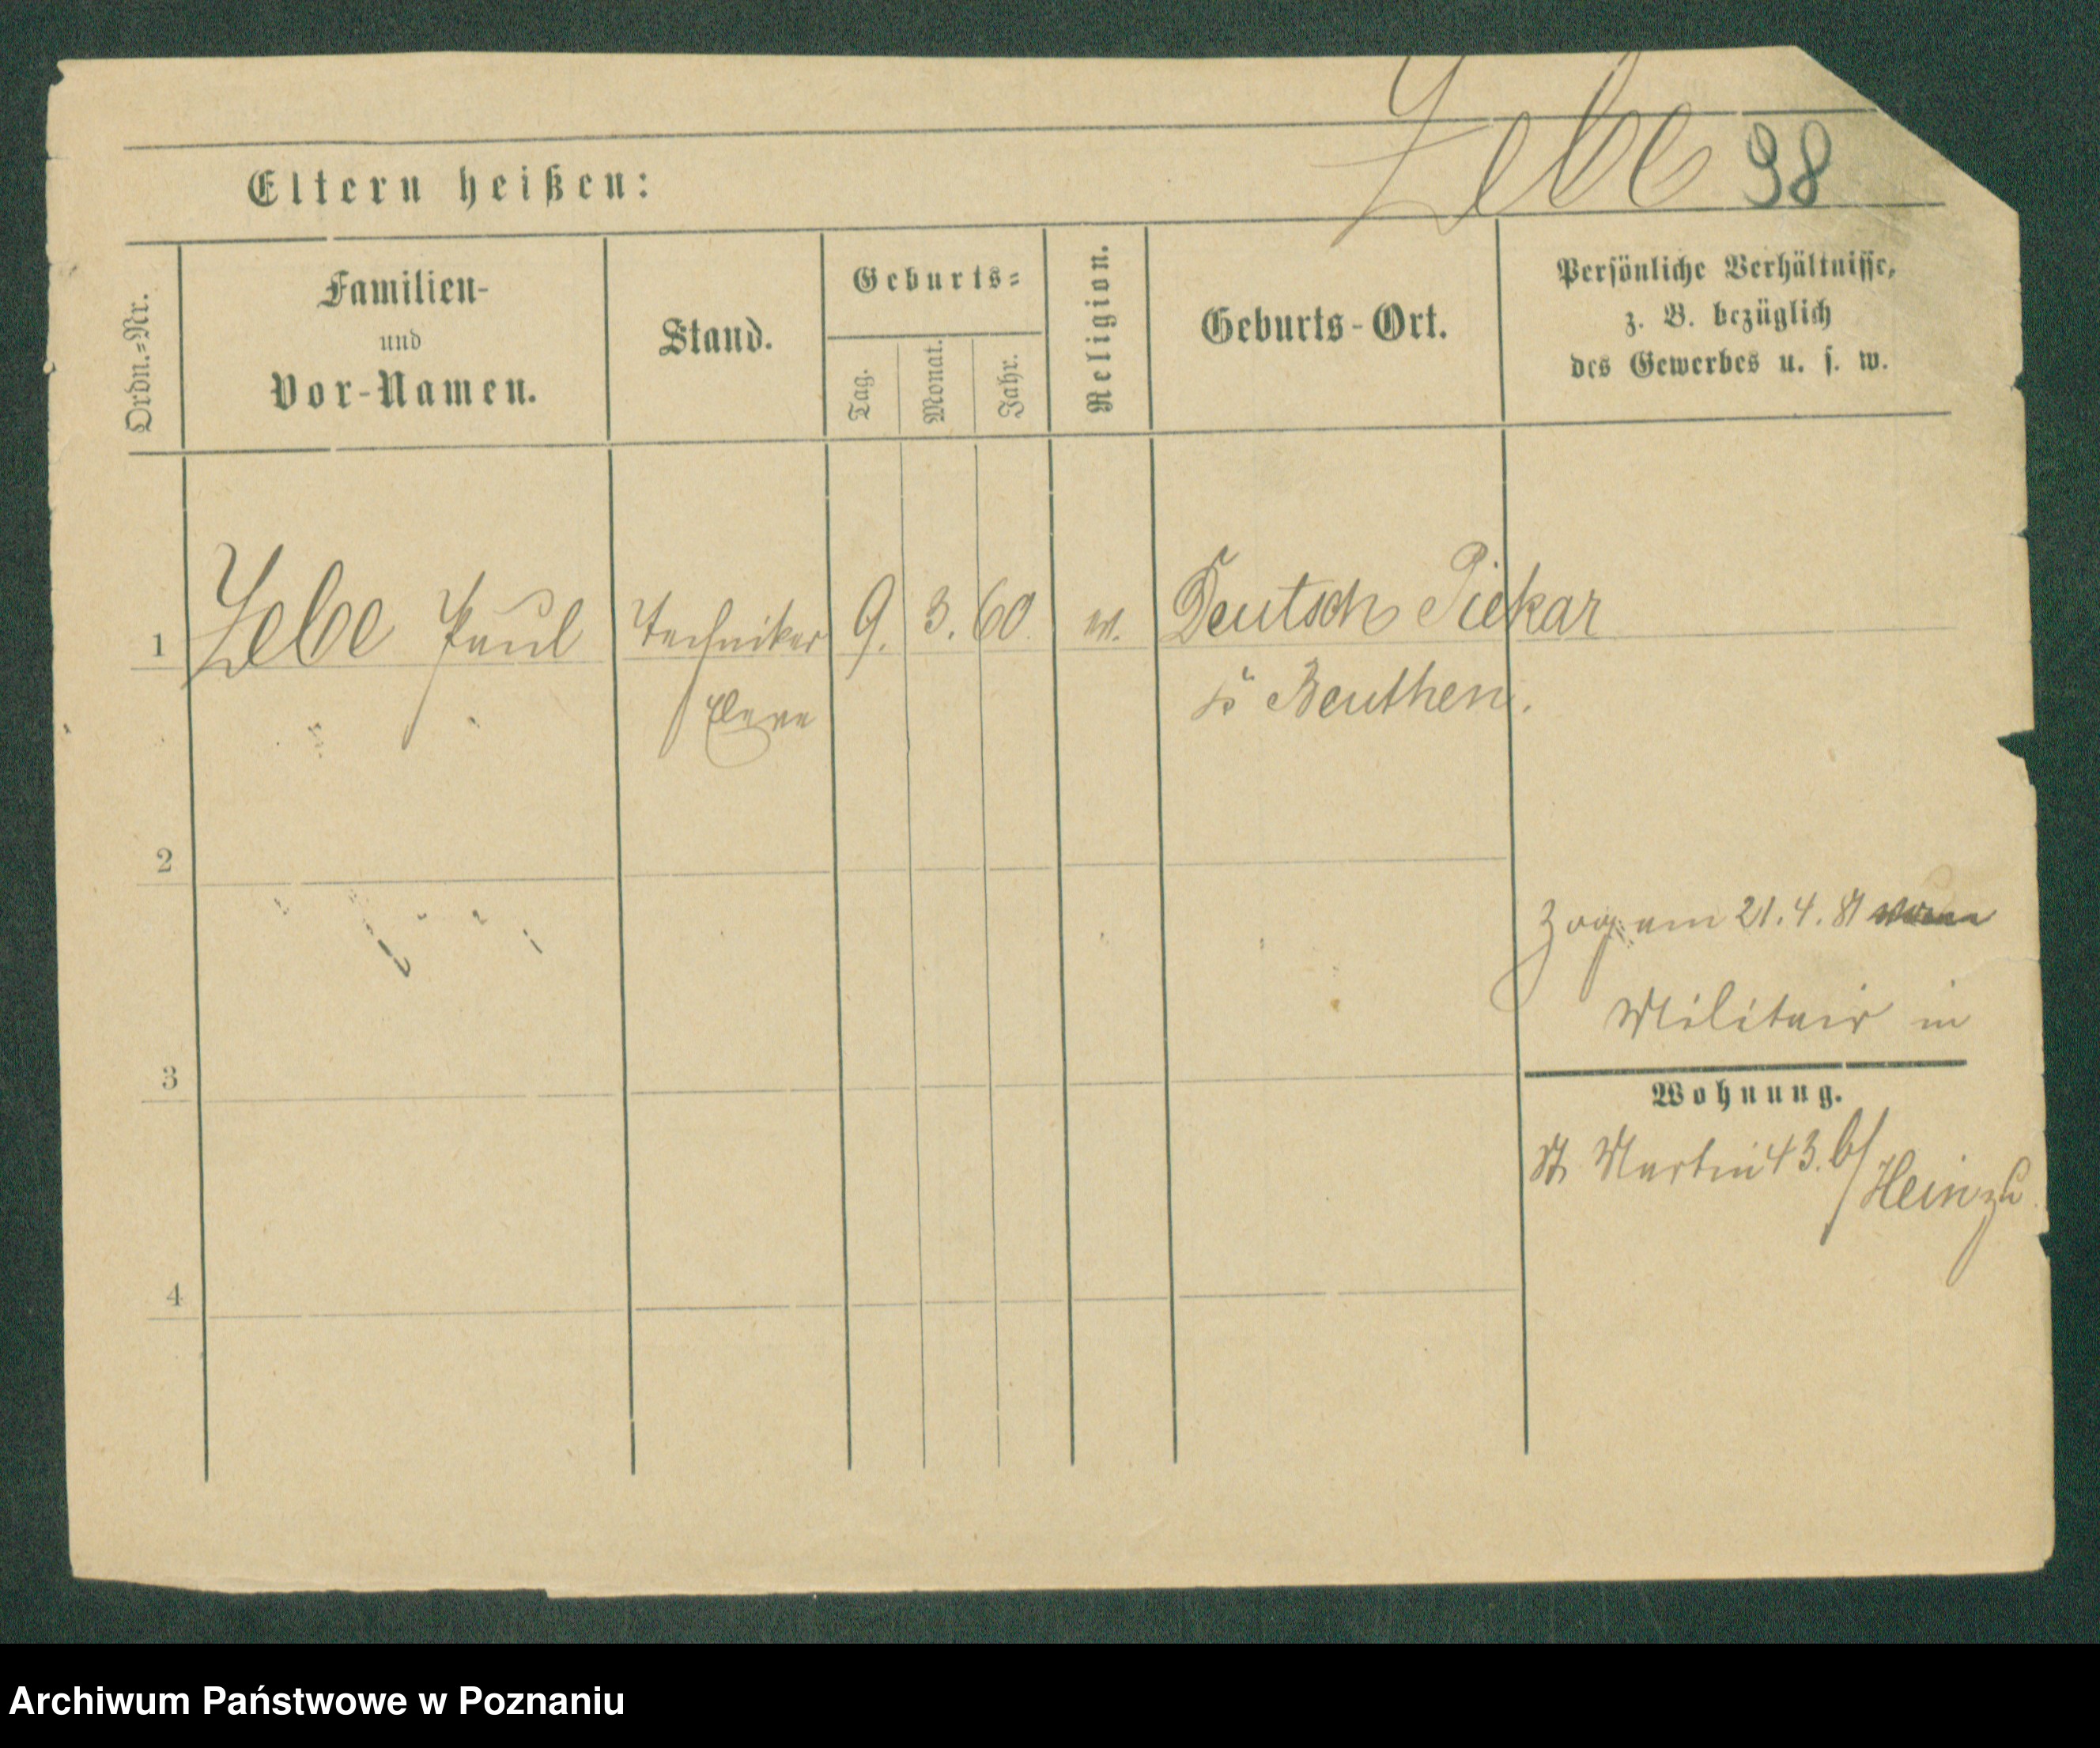 Zebe 98
Eltern heißen:
Ordn.=Nr.
Familien-
und
Vor-Namen.
Stand.
Geburts=
Tag.
Monat.
Jahr.
Religion.
Geburts-Ort.
Persönliche Verhältnisse,
z. B. bezüglich
des Gewerbes u. s. w.
1 Zebe Paul Techniker 9. 3. 60 Deutsch Piekar
Beuthen.
2
Zog am 21.4.81
Militair in
3
Wohnung.
St. Martin 43. b/
Heinze
4
Archiwum Państwowe w Poznaniu